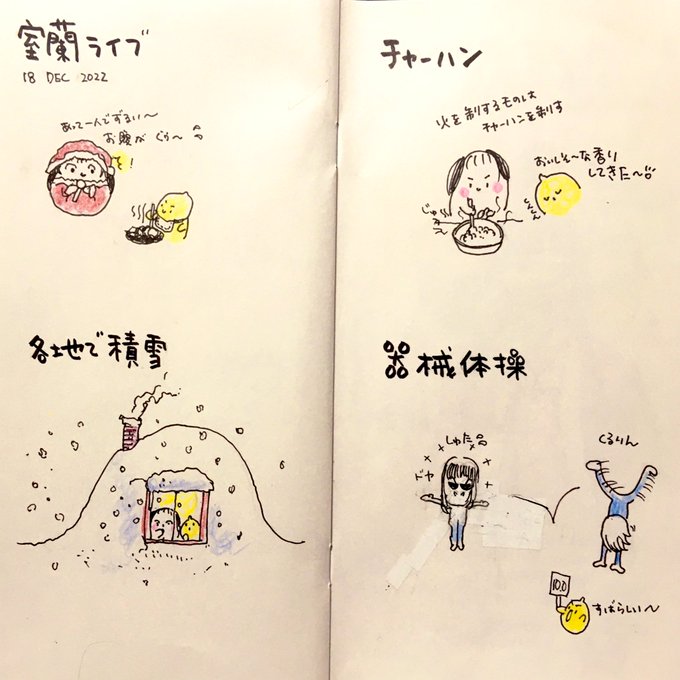 室蘭ライブ
18 DEC 2022
お腹が ぐぅ〜
各地で積雪
チャーハン
火を制するものは
チャーハンを制す
おいしそ〜な香り
してきた〜
くんくん
じゅ
器械体操
しゅた
ドヤ
くるりん
10.0
すばらしい〜